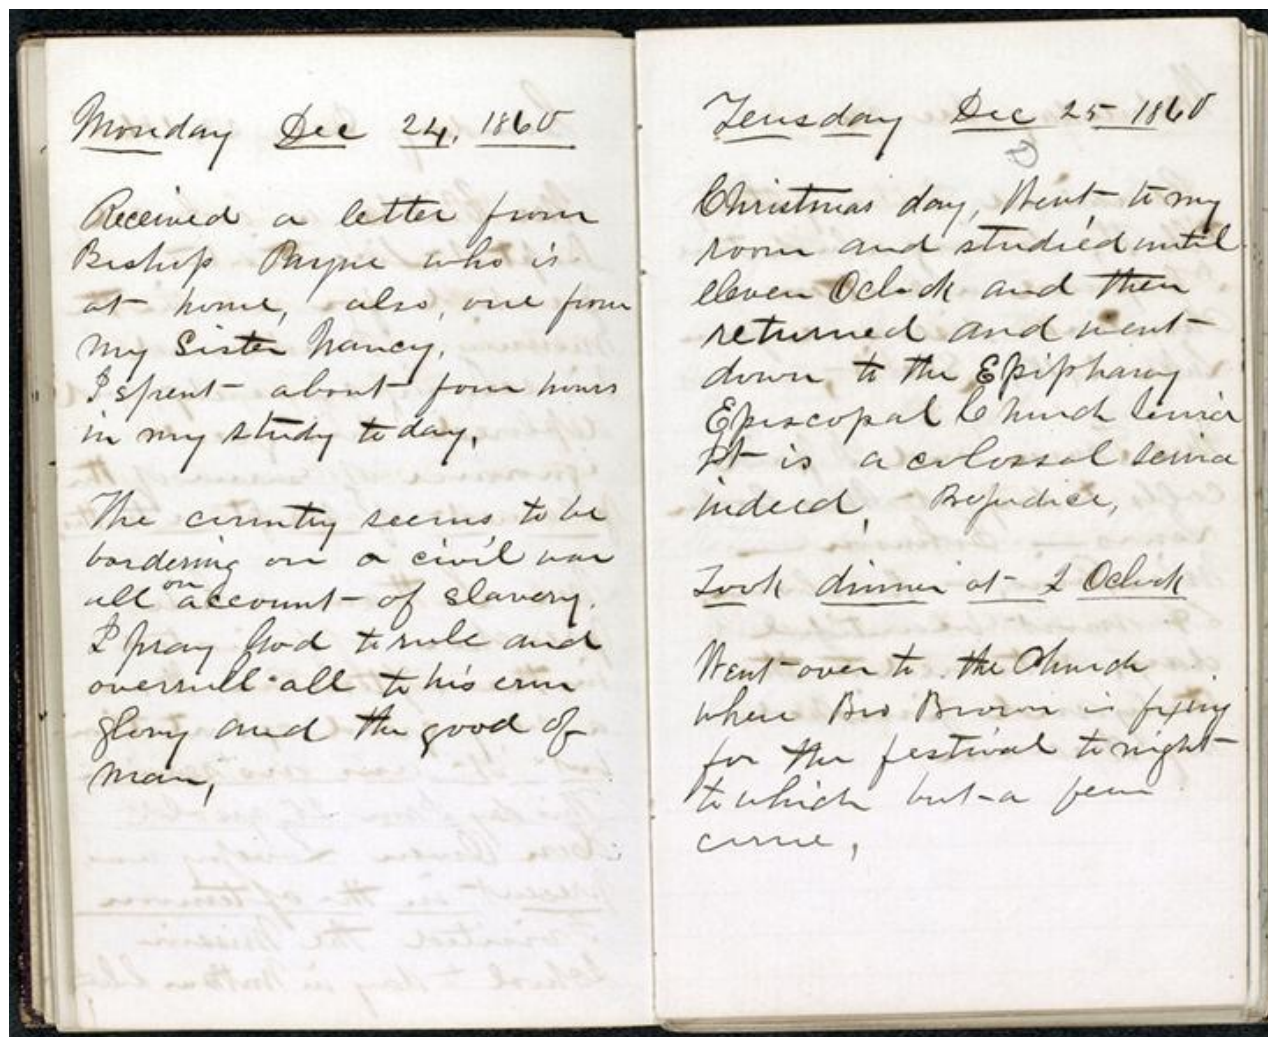 Monday Dec 24, 1860
Received a letter from
Bishop Payne who is
at home, also, one from
my Sister Nancy.
I spent about four hours
in my study today.
The country seems to be
bordering on a civil war
all on account of slavery.
I pray God to rule and
overrule all to his own
glory and the good of
man,
Tuesday Dec 25 1860
Christmas day, Went to my
room and studied until
eleven Oclock and then
returned and went
down to the Epiphany
Episcopal Church
It is a colossal
indeed, Prejudice,
Took dinner at 2 Oclock
Went over to the Church
where Bro Brown is fixing
for the festival tonight
to which but a few
came,